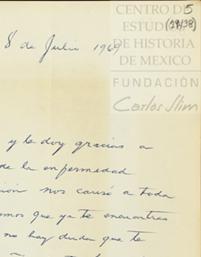 CENTRO DE
ESTUDIOS
DE HISTORIA
DE MEXICO
5
(29/38)
FUNDACIÓN
Carlos Slim
8 de Julio 1969
y le doy gracias a
de la enfermedad
nos causó a toda
mos que ya te encontras
no hay duda que te